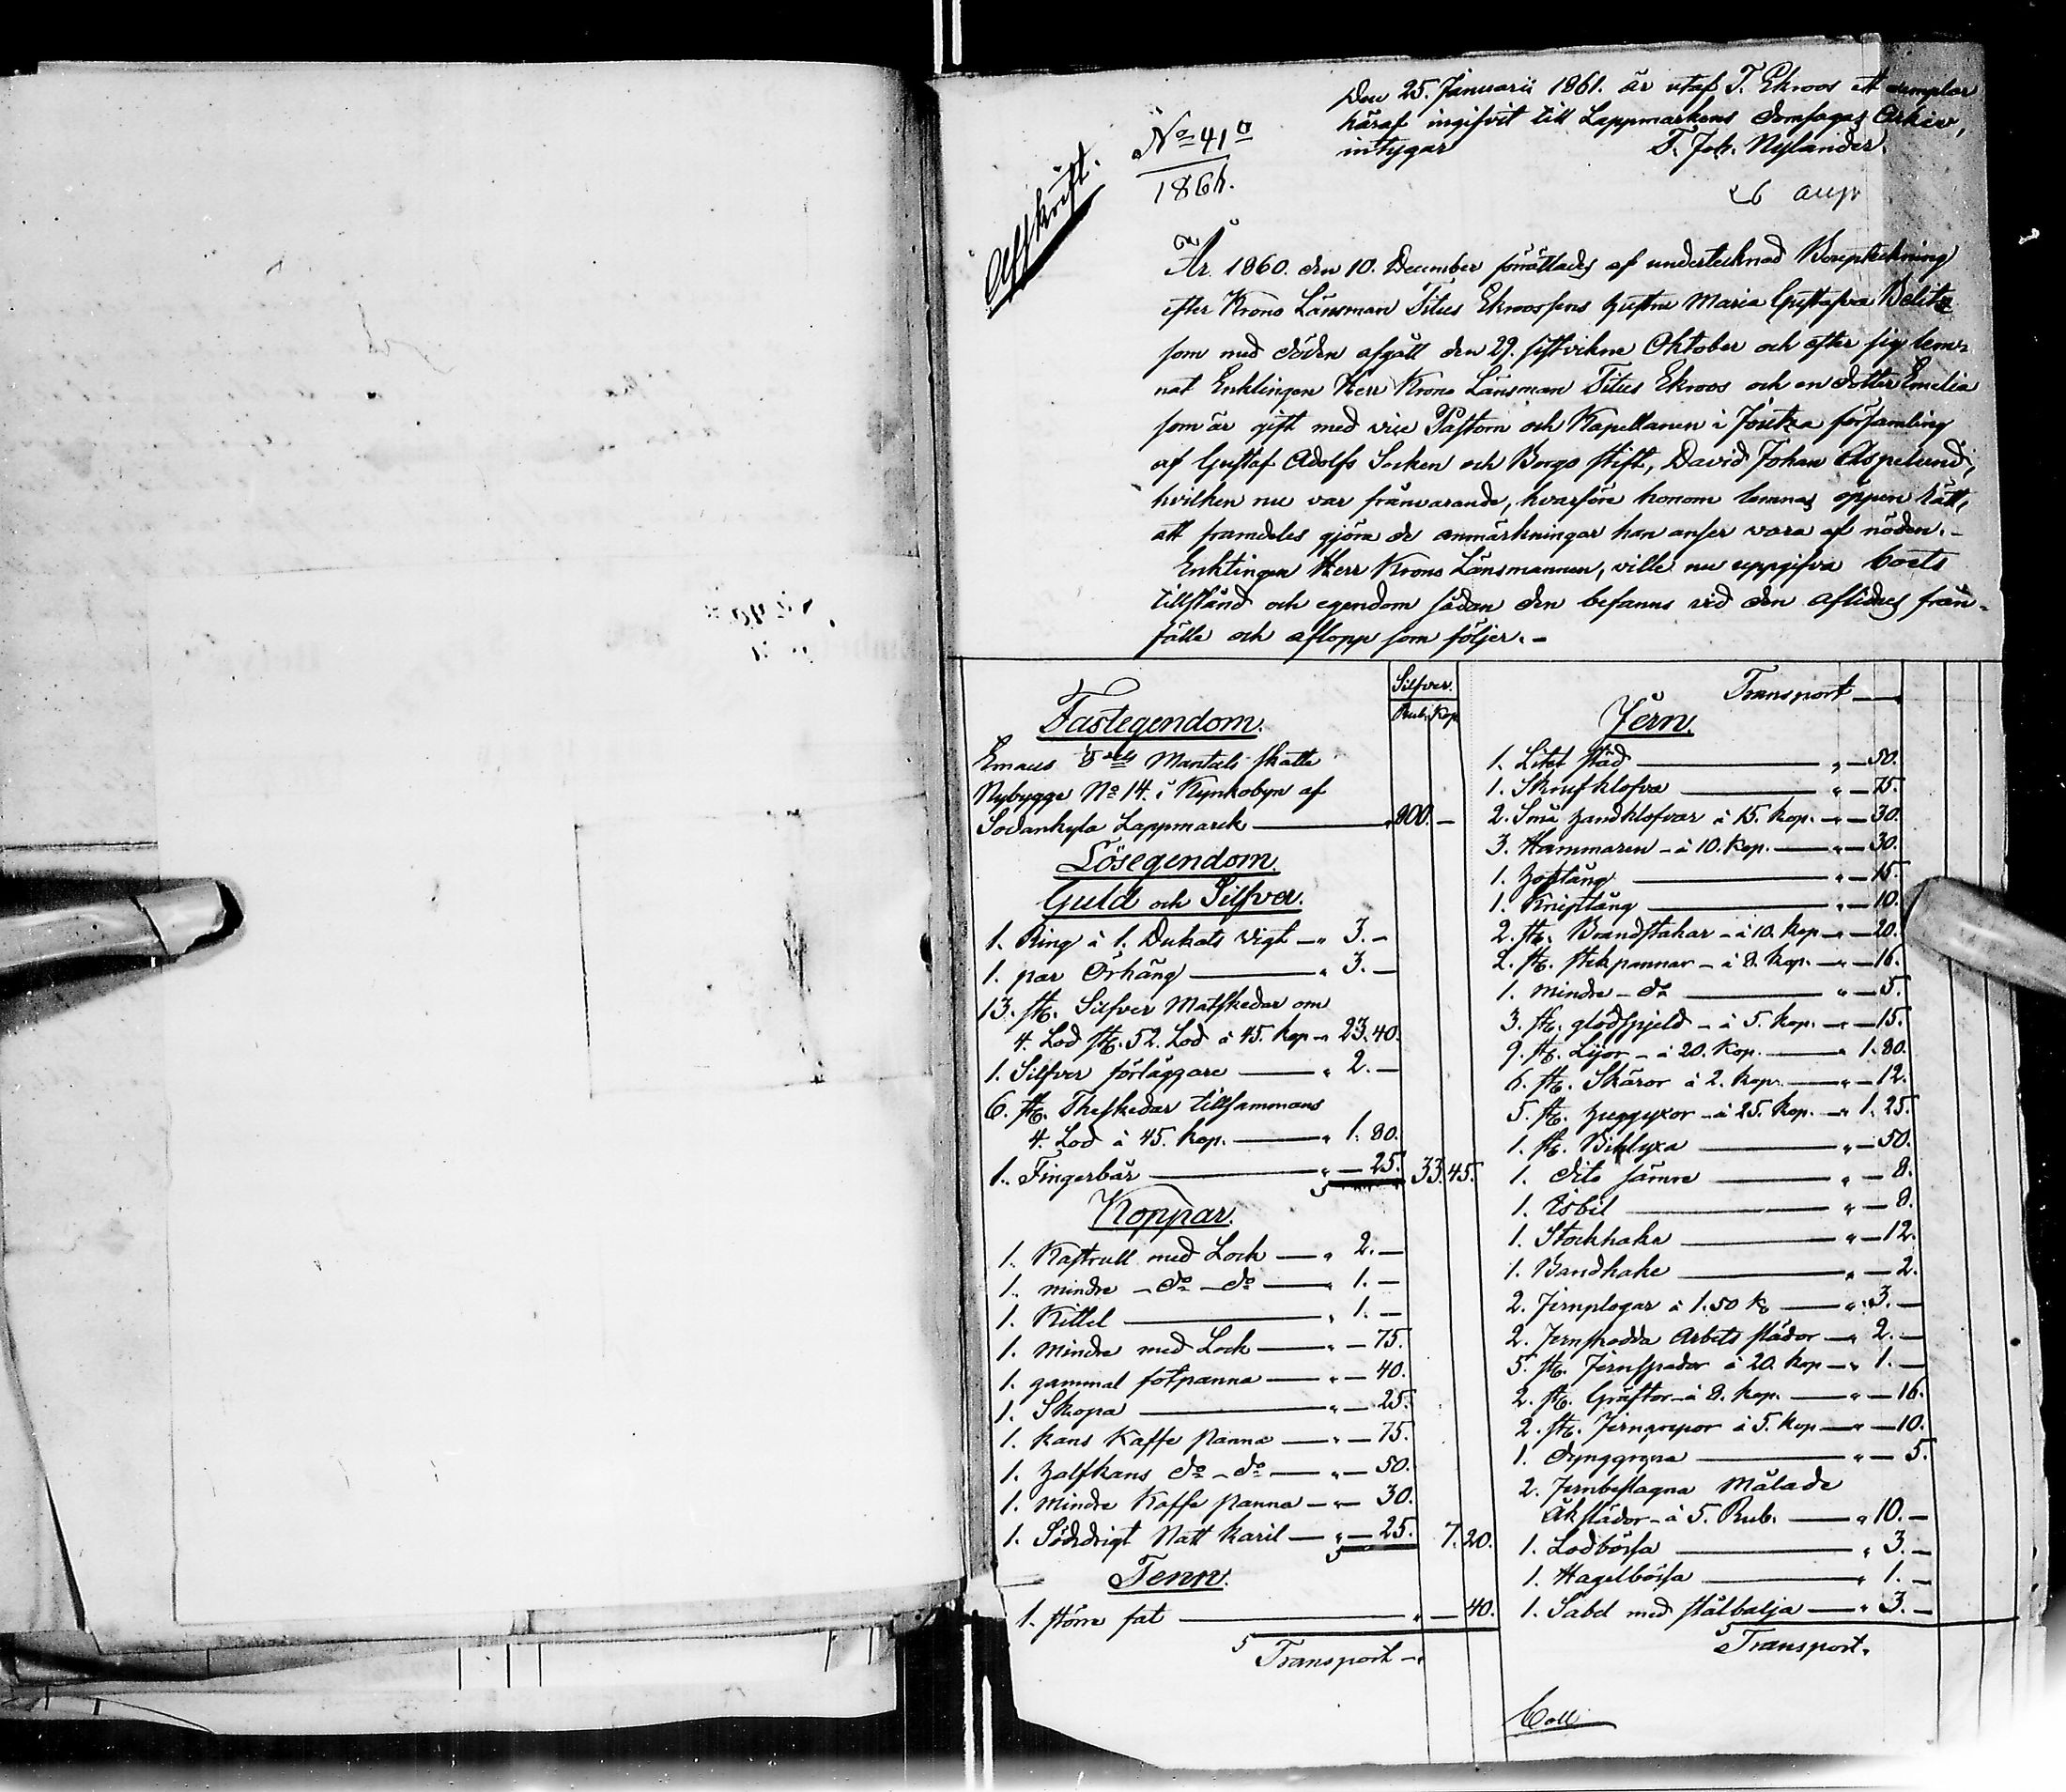 Den 25. Januarii 1861. är utaf T. Ekroos ett exemplar
häraf ingifvit till Lappmarkens Domsagas Arkiv,
intygar T. Joh. Nylander.
Afskrift.
No 41
1861.
År 1860. den 10. December förrättades af undertecknad Bouptekning
efter Krono Länsman Titus Ekroossens hustru Maria Gustafva Belitz
som med döden afgått den 29. sistvikne Oktober och efter sig lem-
nat Enklingen Herr Krono Länsman Titus Ekroos och en dotter Emelia
som är gift med vice Pastorn och Kapellanen i församling
af Gustaf Adolfs Socken och Borgo stift, David Johan Aspelund,
hvilken nu var frånvarande, hvarföre honom lemnas öppen rätt,
att framdeles gjöra de anmärkningar han anser vara af nöden.-
Enklingen Herr Krono Länsmannen, ville nu uppgifva boets
tillstånd och egendom sådan den befanns vid den aflidnes från-
fälle och aflopp som följer.-
Silfver.
Rub. Kop.
Fastegendom.
Emaus 1/8 dels Mantals skatte
Nybygge No 14. i Kyrkobyn af
Sodankyla Lappmark 800. -
Lösegendom.
Guld och Silfver.
1. Ring à 1. Dukats vigt " 3. -
1. par Örhäng " 3. -
13. st. Silfver Matskedar om
4. Lod st. 52. Lod à 45. kop " 23. 40.
1. Silfver förläggare " 2. -
6. st. Theskedar tillsammans
4. Lod à 45. kop. " 1. 80.
1. Fingerbår " - 25. 33. 45.
Koppar.
1. Kastrull med Lock " 2. -
1. mindre - do - do " 1. -
1. Kittel " 1. -
1. mindre med Lock " - 75.
1. gammal fotpanna " - 40.
1. Skopa " - 25.
1. kans Kaffe panna " - 75.
1. halfkans do - do " - 50.
1. mindre Kaffe panna " - 30.
1. Natt karil " - 25. 7. 20.
Tenn.
1. större fat " - 40.
Transport
Transport
Jern.
1. Litet städ " - 50.
1. Skrufklofva " - 75.
2. Små handklofvar à 15. kop. " - 30.
3. Hammaren - à 10. kop. " - 30.
1. hoftång " - 15.
1. Kniptång " - 10.
2. st. Brandstakar - à 10. kop " - 20.
2. st. stekpannor - à 8. kop. " - 16.
1. mindre - do " - 5.
3. st. glodspjeld - à 5. kop. " - 15.
9. st. Lijor - à 20. kop. " 1. 80.
6. st. Skäror à 2. kop. " - 12.
5. st. huggyxor - à 25. kop. " 1. 25.
1. st. Bilyxa " - 50.
1. dito sämre " - 8.
1. Isbil " - 8.
1. Stockhake " - 12.
1. Bandhake " - 2.
2. Jernplogar à 1. 50 k. " 3. -
2. Jernskodda Arbets slädor " 2. -
5. st. Jernspadar à 20. kop " 1. -
2. st. Gräftor - à 8. kop. " - 16.
2. st. Jerngrepor à 5. kop " - 10.
1. Dynggrepa " - 5.
2. Jernbeslagna Målade
Åkslädor - à 5. Rub. " 10. -
1. Lodbössa " 3. -
1. Hagelbössa " 1. -
1. Sabel med stålbalja " 3. -
Transport.
Coll